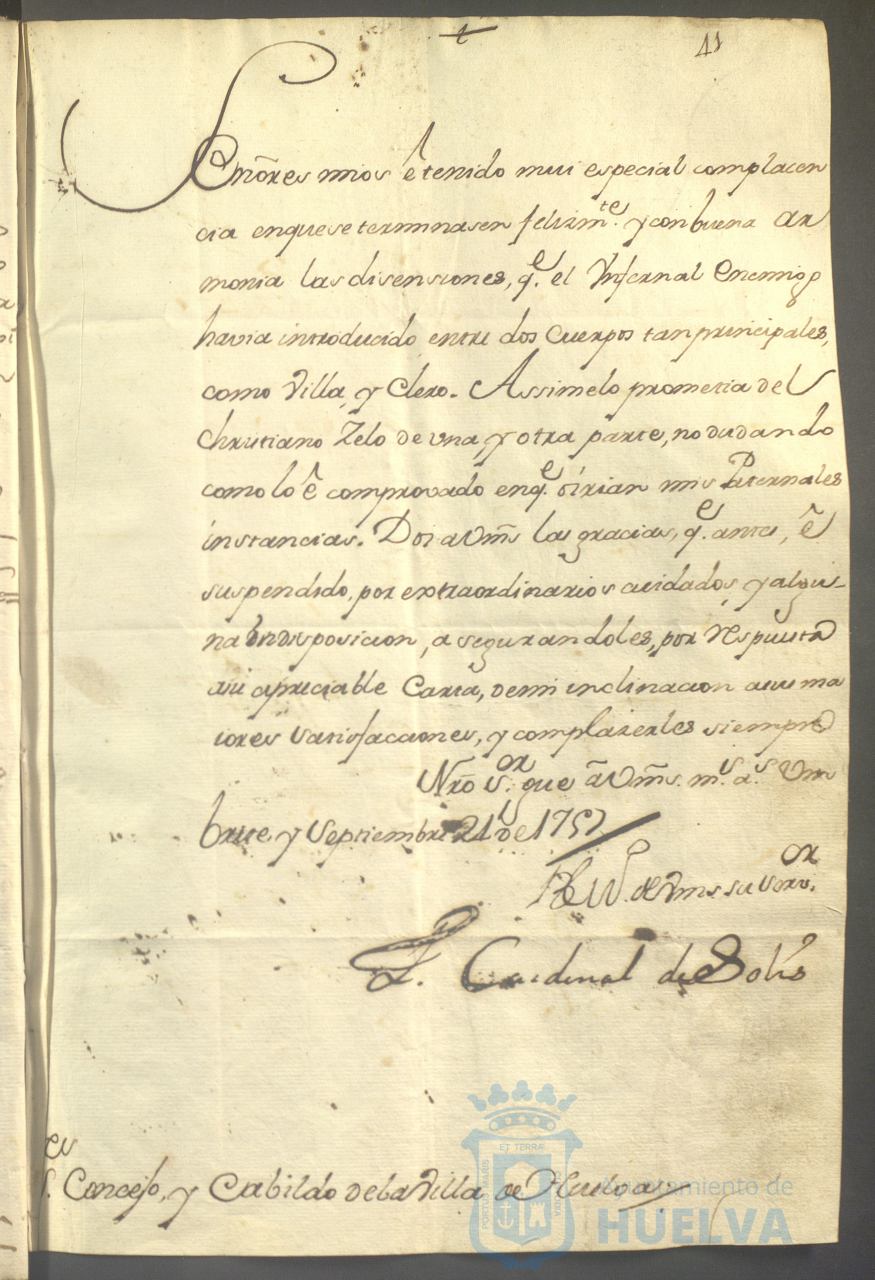 41
Señores mios ê tenido mui especial complacen
cia en que se terminasen felizm.te y con buena ar
monia las disensiones, q.e el Infernal Enemigo
havia introducido entre dos Cuerpos tan principales,
como Villa, y Clero. Assi me lo prometia del
Christiano Zelo de una, y otra parte, no dudando
como lo ê comprovado en q.e oírian mis Paternales
instancias. Doi a Vms las gracias, q.e antes, ê
suspendido, por extraordinarios cuidados, y algu-
na Indisposicion, asegurandoles, por respuesta
a su apreciable Carta, de mi inclinacion a sus ma
iores satisfacciones, y complazerles siempre
Nrô S.or gue â Vms. m.s a.s Um
brete, y Septiembre 21 de 1757
de Vms su Serv.or
F. Cardenal de Solís
S.es Concejo, y Cabildo de la Villa de Huelva
PORTUS MARIS ET TERRÆ CUSTODIA
Ayuntamiento de
HUELVA